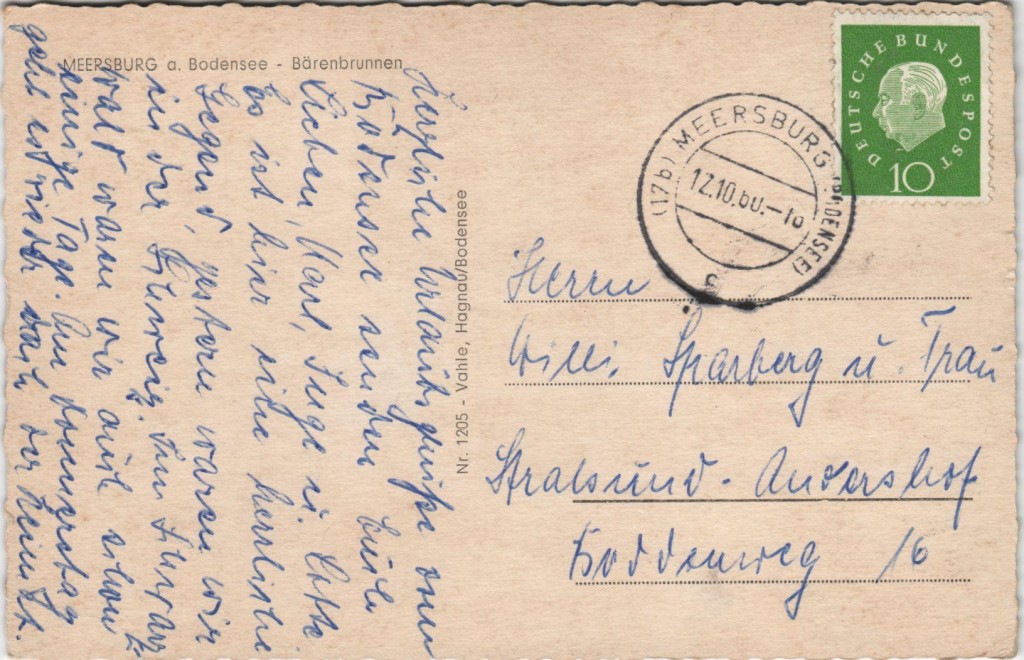 MEERSBURG a. Bodensee - Bärenbrunnen
Herzliche Urlaubsgrüße vom
Bodensee senden Euch
Lieben, Karl, Inge u. Lotte.
Es ist hier eine herrliche
Gegend, gestern waren wir
in der Schweiz. Im Schwarz
wald waren wir auch schon
einige Tage. Am Donnerstag
geht es wieder nach der Heimat.
Nr. 1205 - Vahle, Hagnau/Bodensee
DEUTSCHE BUNDESPOST
10
(17b) MEERSBURG (BODENSEE)
12.10.60.-18
Herrn
Willi Sparberg u. Frau
Stralsund - Andershof
Boddenweg 16